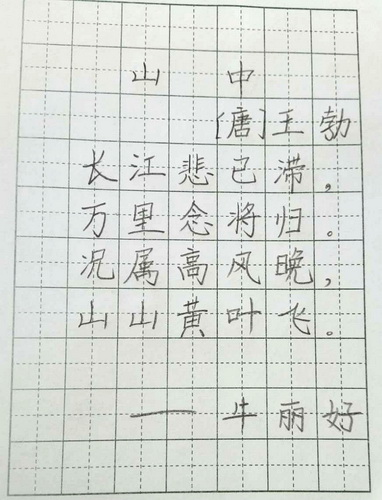 山中
[唐]王勃
长江悲已滞，
万里念将归。
况属高风晚，
山山黄叶飞。
——牛丽好